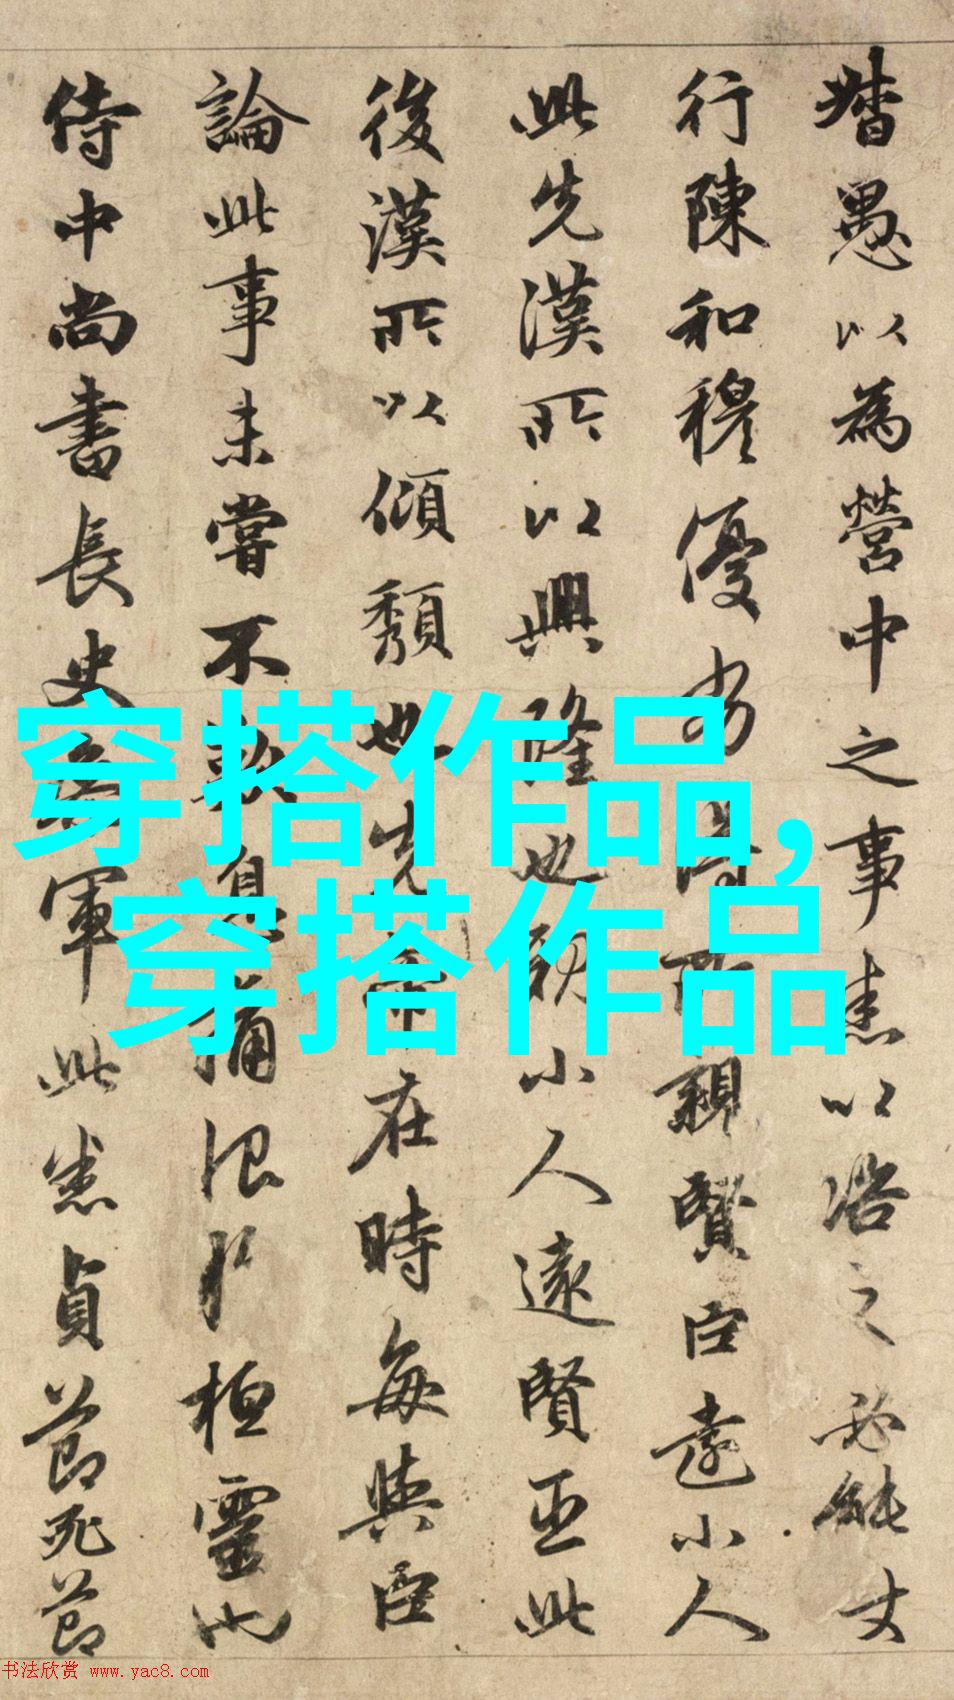 督愚以為營中之事悉以咨之必能丈
行陳和穆優劣得所親賢臣遠小人
此先漢所以興隆也親小人遠賢臣此
後漢所以傾頹也先帝在時每與臣
論此事未嘗不歎息痛恨於桓靈也
侍中尚書長史參軍此悉貞節死節
穿搭作品,
穿搭作品
书法欣赏 www.yac8.com